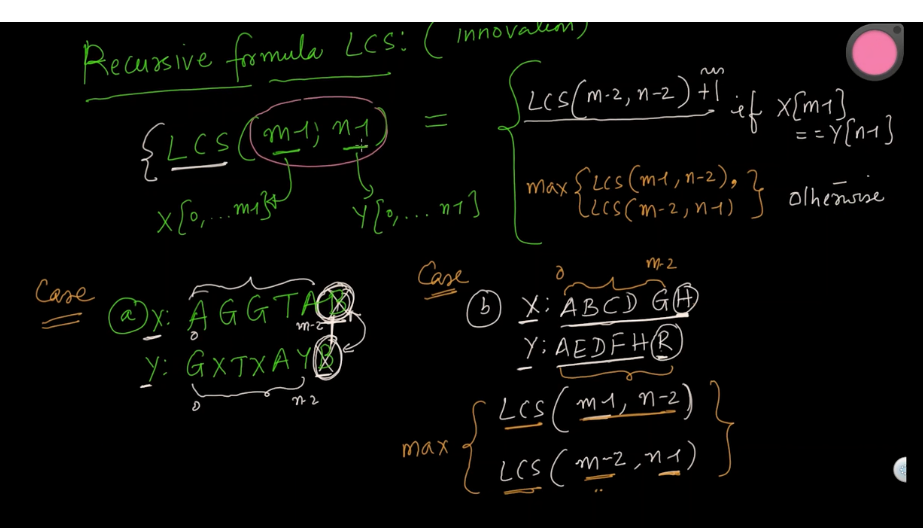 Recursive formula LCS: ( innovation)
{ LCS ( m-1, n-1 ) =
LCS(m-2, n-2) +1 if X[m-1]
==Y[n-1]
max { LCS(m-1, n-2),
LCS(m-2, n-1) } otherwise
X[0,...m-1] Y[0,... n-1]
Case
a X: A G G T A B
0 m-2
Y: G X T X A Y B
0 n-2
Case
0 m-2
b X: A B C D G H
Y: A E D F H R
max { LCS ( m-1, n-2 )
LCS ( m-2, n-1 ) }